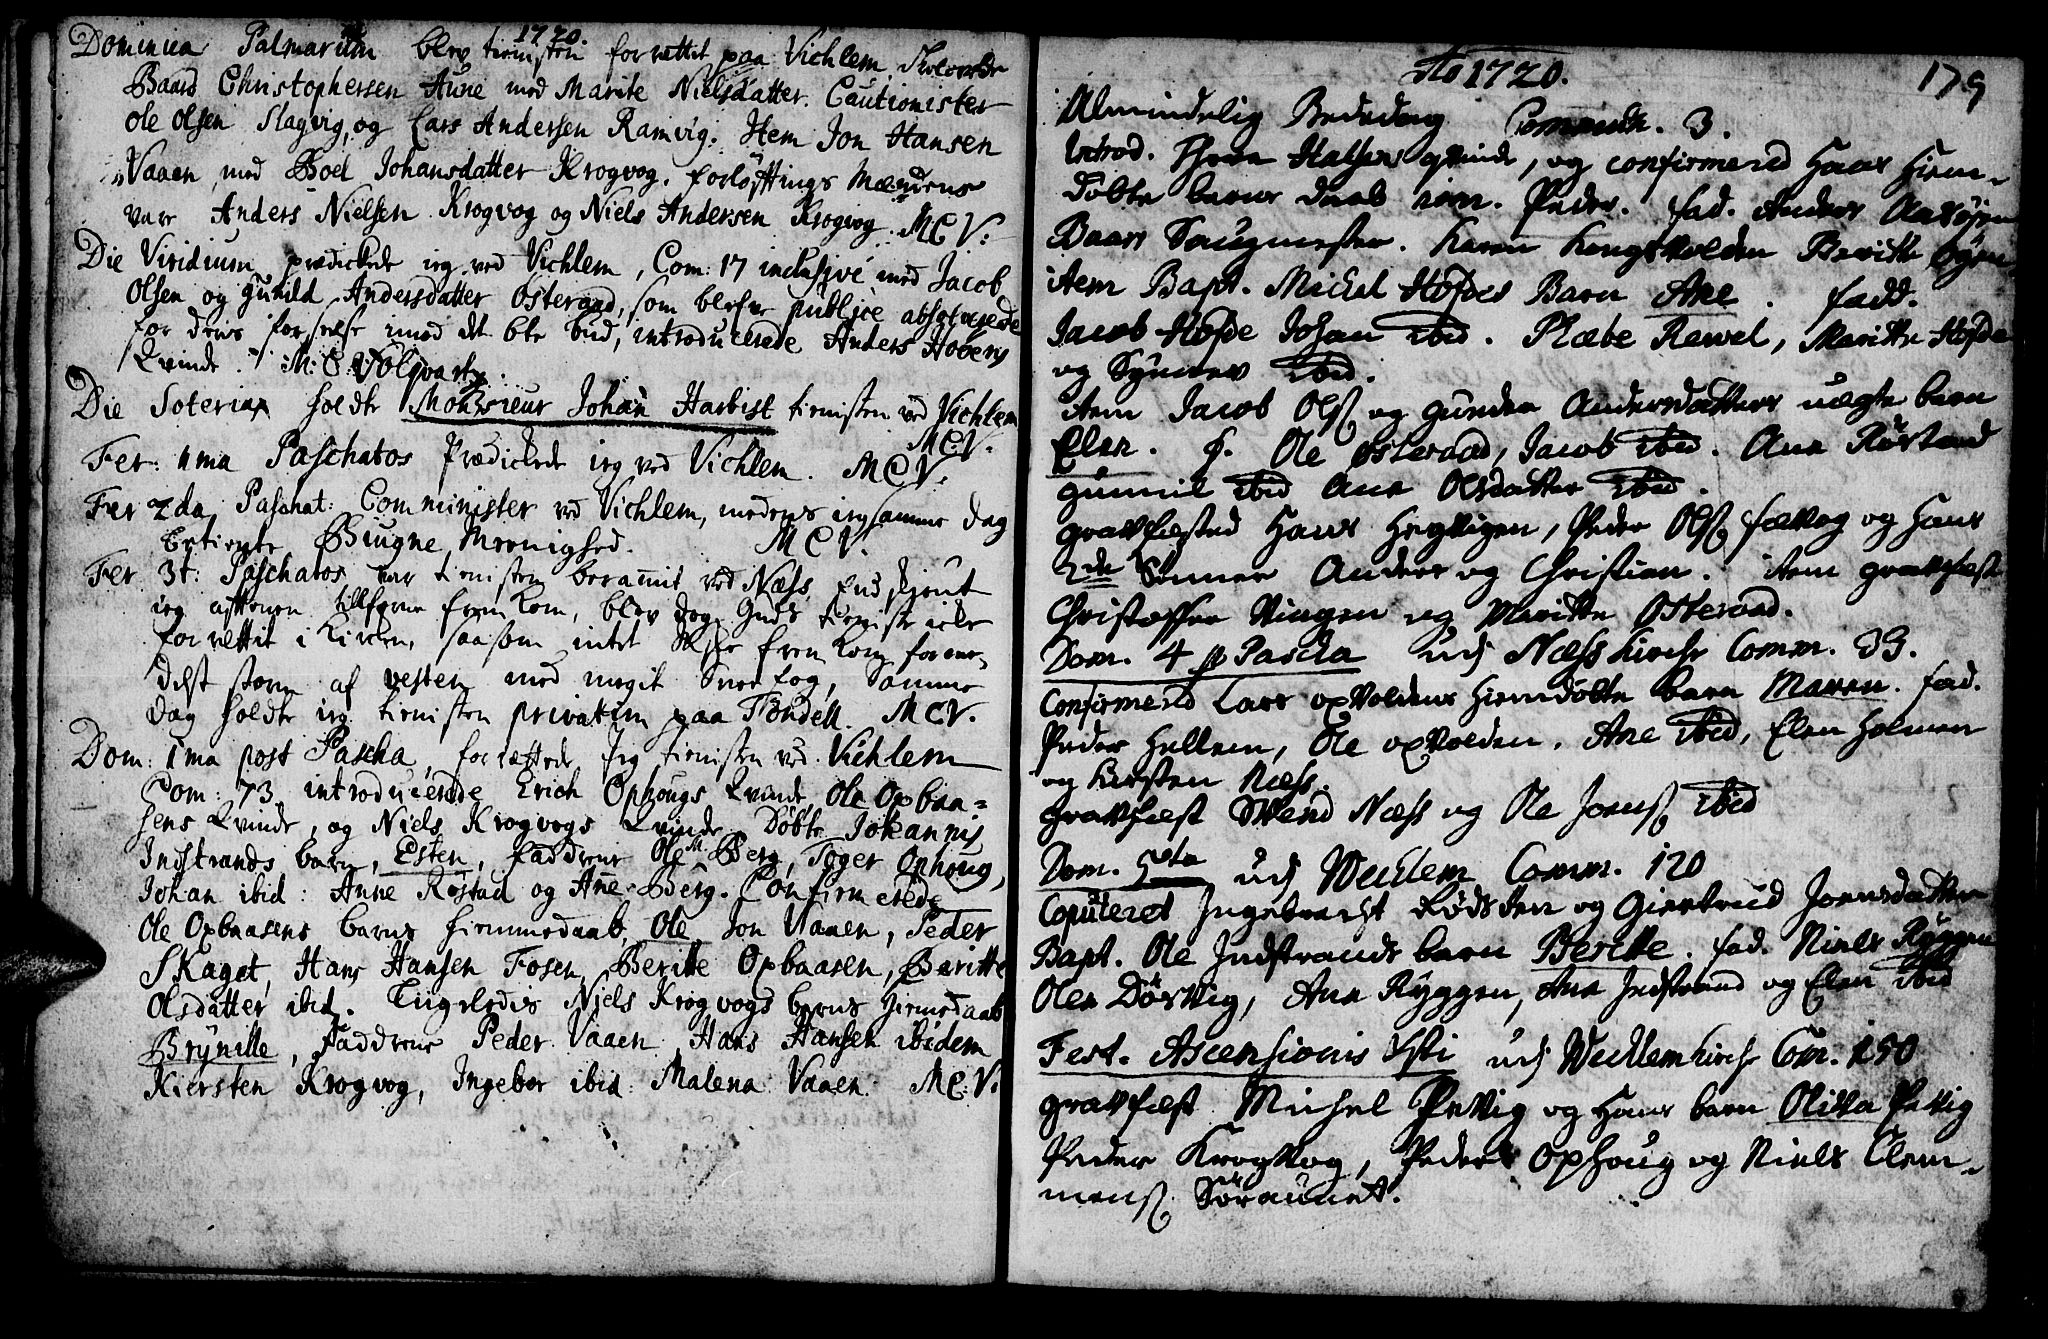 1720.
Dominica Palmarum blev tienisten forrettet paa Vichlem. Trolovede
Baard Christophersen Aune med Marite Nielsdatter. Cautionister
Ole Olsen Slagvig, og Lars Andersen Ramvig. Item Jon Hansen
Vaaen, med Boel Johansdatter Krogvog. forløftings Mændene
var Anders Nielsen Krogvog og Niels Andersen Krogvog. MCV:
Die Viridium prædickede ieg ved Vichlem, Com: 17 inclusive med Jacob
Olsen og Gunild Andersdatter Osteraad, som blefve publice absolverede
for deris forseelse imod det 6te bud, introducerede Anders Hovens
Kvinde. M: C: Volqvartz.
Die Soteriæ holdte Monsieur Johan Harbist tienisten ved Vichlem
MCV.
Fer: 1ma Paschatos Prædickede ieg ved Vichlem. MCV.
Fer 2da Paschat: Comminister ved Vichlem, medens ieg samme dag
betiente Biugne Menighed. MCV.
Fer 3t: Paschatos var tienisten berammit ved Næss, Endskjønt
ieg aftenen tillforne frem kom, blev dog Guds tieniste icke
forrettit i Kircken, saasom intet folk frem kom formedelst
storm af vesten med megit Snee fog, Samme
dag holdte ieg tienisten privatim paa Tøndell. MCV.
Dom: 1ma post Pascha, forrettede Jeg tienisten ved Vichlem
Com: 73 introducerede Erich Ophougs Kvinde, Ole Opbaa=
sens Kvinde, og Niels Krogvogs Kvinde. Døbte Johannis
Indstrands barn, Esten, faddrene Ole Berg, Toger Ophoug,
Johan ibid: Anne Røstad og Ane Berg. Confirmerede
Ole Opbaasens barns hiemmedaab, Ole Jon Vaaen, Peder
Skaget, Hans Hansen Fosen, Beritte Opbaasen, Beritte
Olsdatter ibid. Liigeledis Niels Krogvogs barns hiemedaab
Brynille, faddrene Peder Vaaen, Hans Hansen ibidem
Kiersten Krogvog, Ingebor ibid: Malena Vaaen. MC:V.
Ao 1720. 179
Almindelig Bededag Comunic. 3.
Halsens qvinde, og confirmered Hans hiem-
døbte barns daab nom. Peder. fad. Anders
Baars Karen Kongsvolden Beritte
item Bapt. Michel Hofdes Barn Ane. fadd.
Jacob Hofde Johan ibid. Phæbe Rewel, Maritte Hofde
og Synnev ibid.
item Jacob Ols. og Gunder Andersdatters uægte barn
Elen. f. Ole Osteraad, Jacob ibid. Ane Røstad
Gunnil ibid Ane Olsdatter ibid.
gravfæsted Hans Hegvigen, Peder Ols. og Hans
2de Sønner Anders og Christian. item gravfæst
Christoffer Vingen og Maritte Osteraad.
Dom. 4 p. Pascha udj Næss kirche Comm. 39.
Confirmered Lars opvoldens hiemdøbte barn Maren. fad.
Peder Hellem, Ole opvolden, Ane ibid, Elen Holmen
og Kirsten Næss.
gravfæst Swend Næss og Ole Joens. ibid
Dom. 5ta udj Wechlem Comm. 120
Coputeret Ingebrecht Rødsten og Giertrud Joensdatter
Bapt. Ole Indstrands barn Beritte. fad. Niels Ryggen
Ole Dørvig, Ane Ryggen, Ane Indstrand og Elen ibid
Fest. Ascensionis Xsti udj Wechlem kirche Com. 150
gravfæst Michel Petvig og Hans barn Olitta Petvig
Peder Krogvog, Peder Ophoug og Niels Clem-
mens. Søraunet.